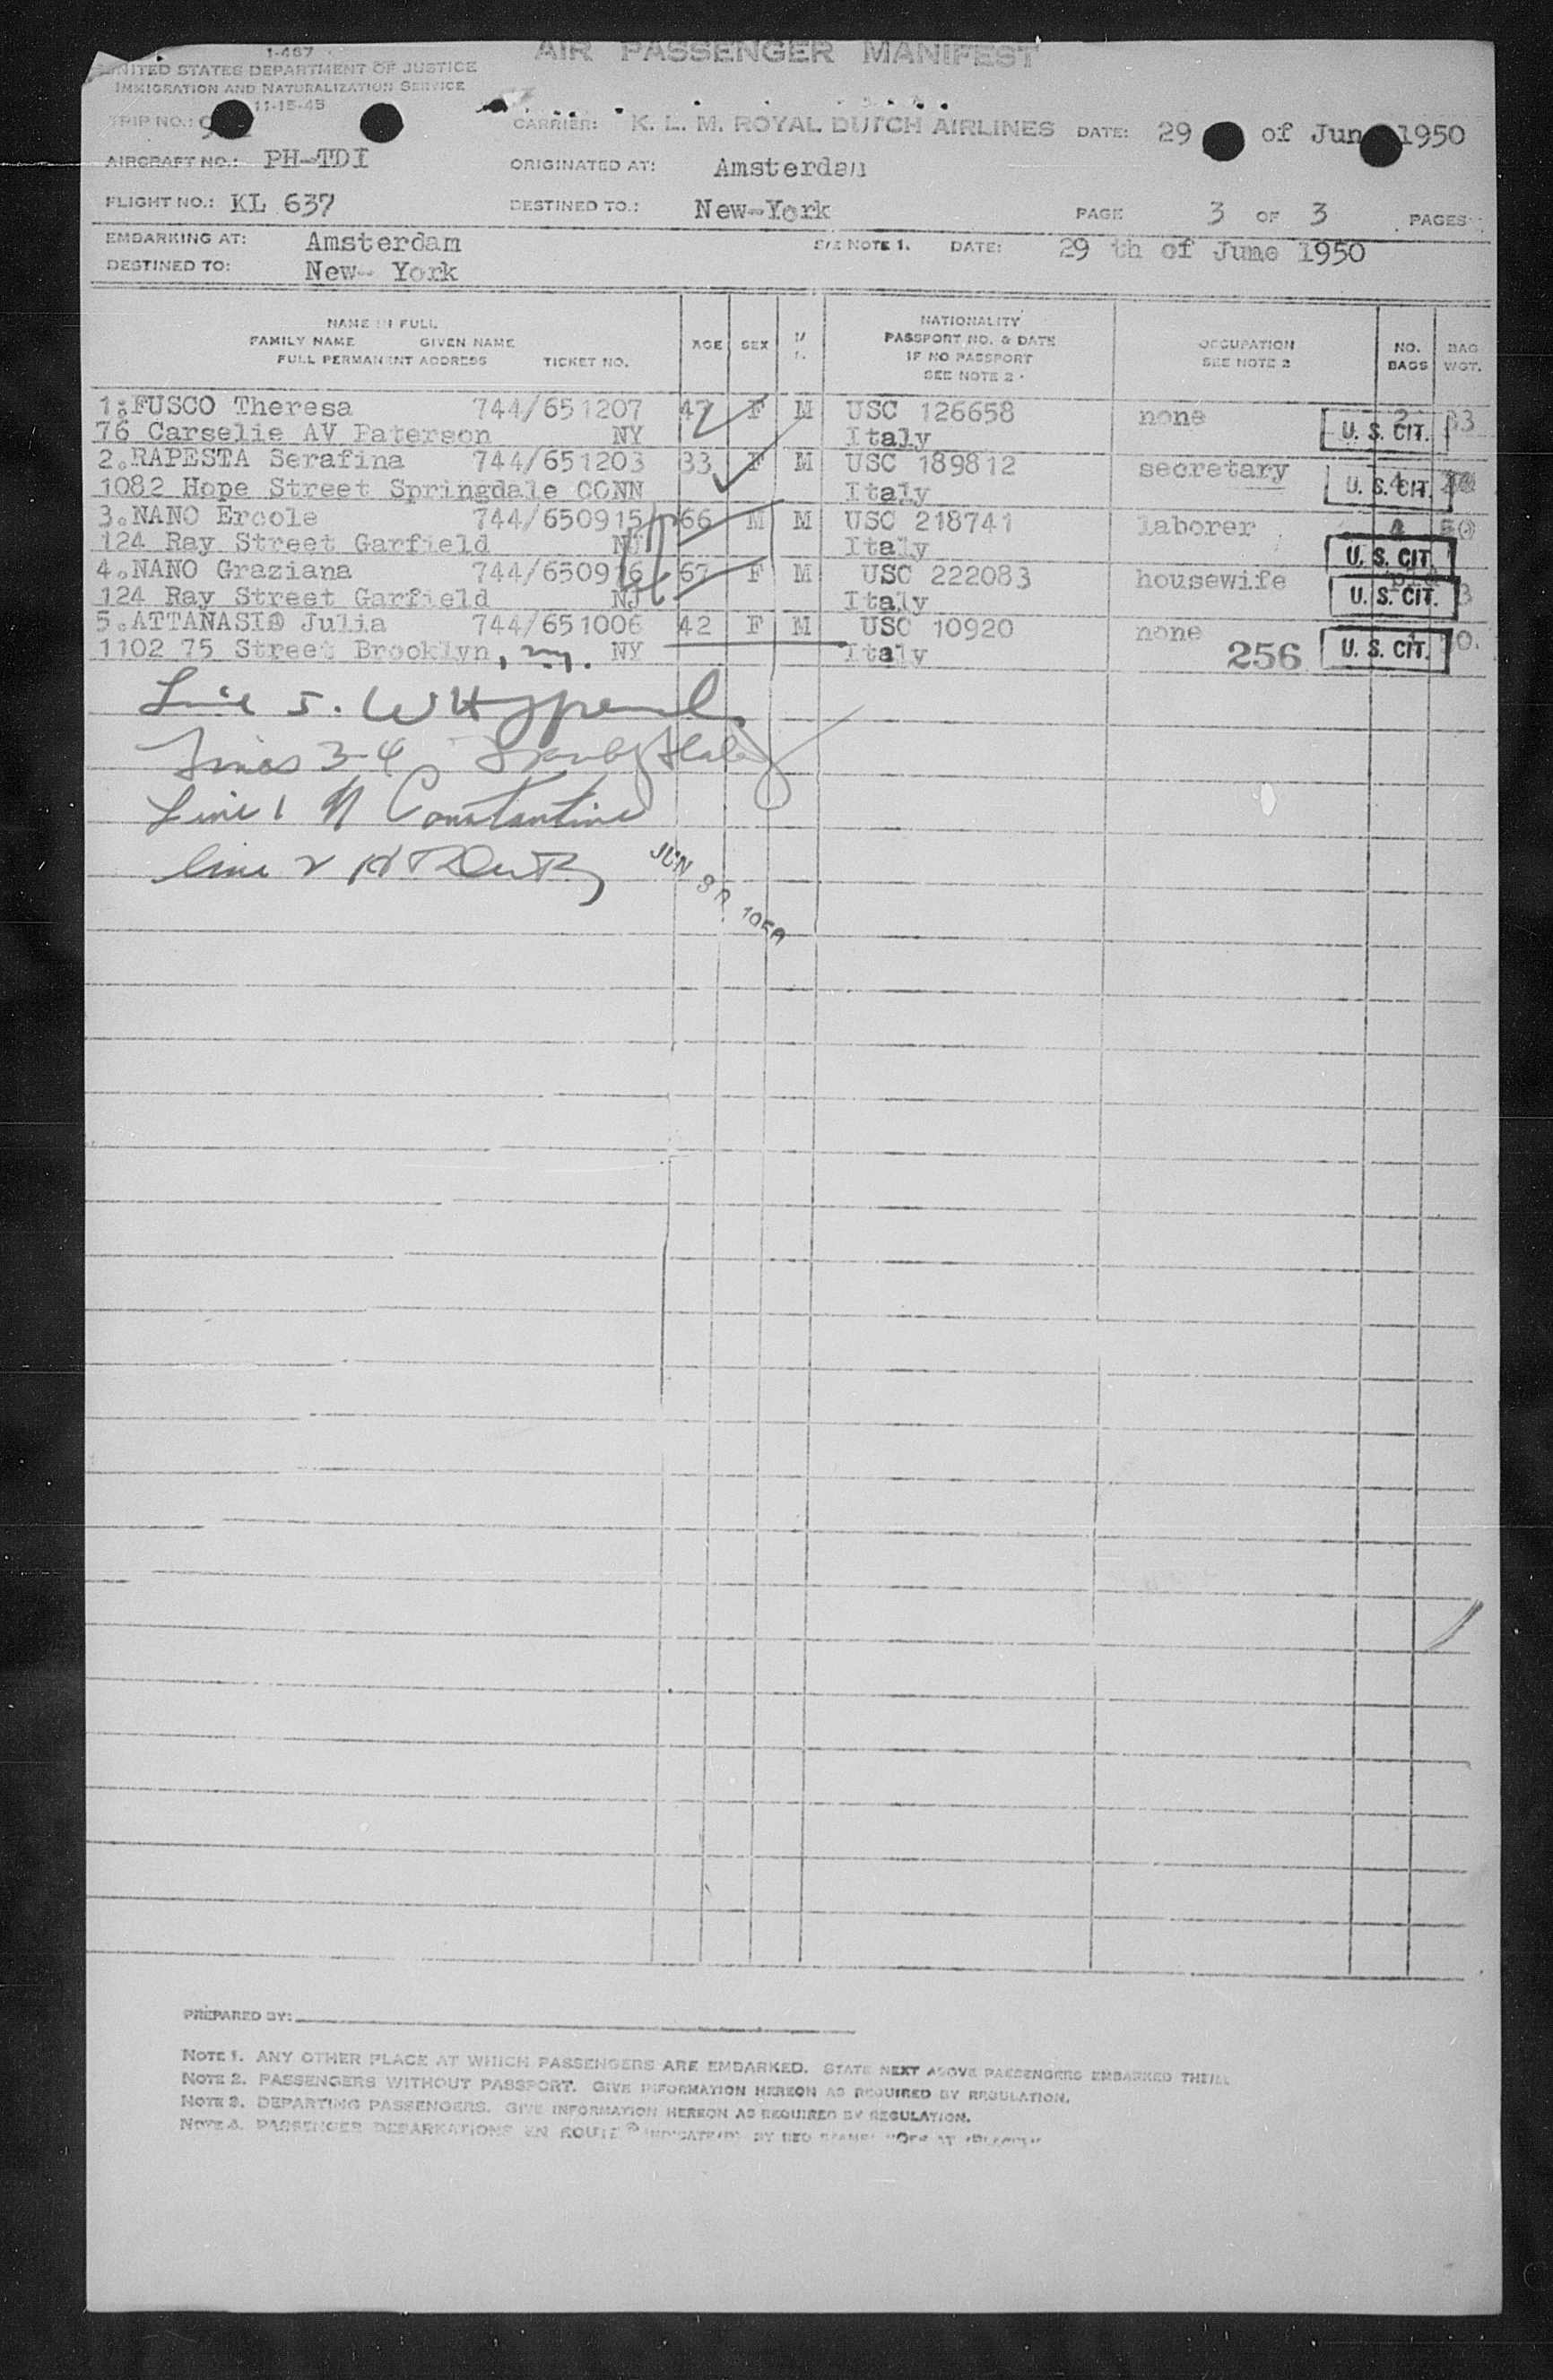 1-467
UNITED STATES DEPARTMENT OF JUSTICE
IMMIGRATION AND NATURALIZATION SERVICE
11-15-45
AIR PASSENGER MANIFEST
TRIP NO.: CARRIER: K. L. M. ROYAL DUTCH AIRLINES DATE: 29 of Jun 1950
AIRCRAFT NO.: PH-TDI ORIGINATED AT: Amsterdam
FLIGHT NO.: KL 637 DESTINED TO.: New-York PAGE 3 OF 3 PAGES
EMBARKING AT: Amsterdam SEE NOTE 1. DATE: 29 th of June 1950
DESTINED TO: New- York
NAME IN FULL
FAMILY NAME GIVEN NAME
FULL PERMANENT ADDRESS TICKET NO.
AGE SEX
NATIONALITY
PASSPORT NO. & DATE
IF NO PASSPORT
SEE NOTE 2
OCCUPATION
SEE NOTE 2
NO.
BAGS
BAG
WGT.
1.FUSCO Theresa 744/651207 47 F M USC 126658 none 2
76 Carselie AV Paterson NY Italy U. S. CIT.
2.RAPESTA Serafina 744/651203 33 F M USC 189812 secretary
1082 Hope Street Springdale CONN Italy U. S. CIT.
3.NANO Ercole 744/650915 66 M M USC 218741 laborer
124 Ray Street Garfield NJ Italy U. S. CIT.
4.NANO Graziana 744/650916 67 F M USC 222083 housewife
124 Ray Street Garfield NJ Italy U. S. CIT.
5.ATTANASIO Julia 744/651006 42 F M USC 10920 none
1102 75 Street Brooklyn, ny. NY Italy 256 U. S. CIT.
Line 5.
Lines 3-4
Line 1 Constantine
line 2
JUN 30 1950
PREPARED BY:
NOTE 1. ANY OTHER PLACE AT WHICH PASSENGERS ARE EMBARKED. STATE NEXT ABOVE PASSENGERS EMBARKED THERE
NOTE 2. PASSENGERS WITHOUT PASSPORT. GIVE INFORMATION HEREON AS REQUIRED BY REGULATION.
NOTE 3. DEPARTING PASSENGERS. GIVE INFORMATION HEREON AS REQUIRED BY REGULATION.
NOTE 4. PASSENGER DEBARKATIONS EN ROUTE